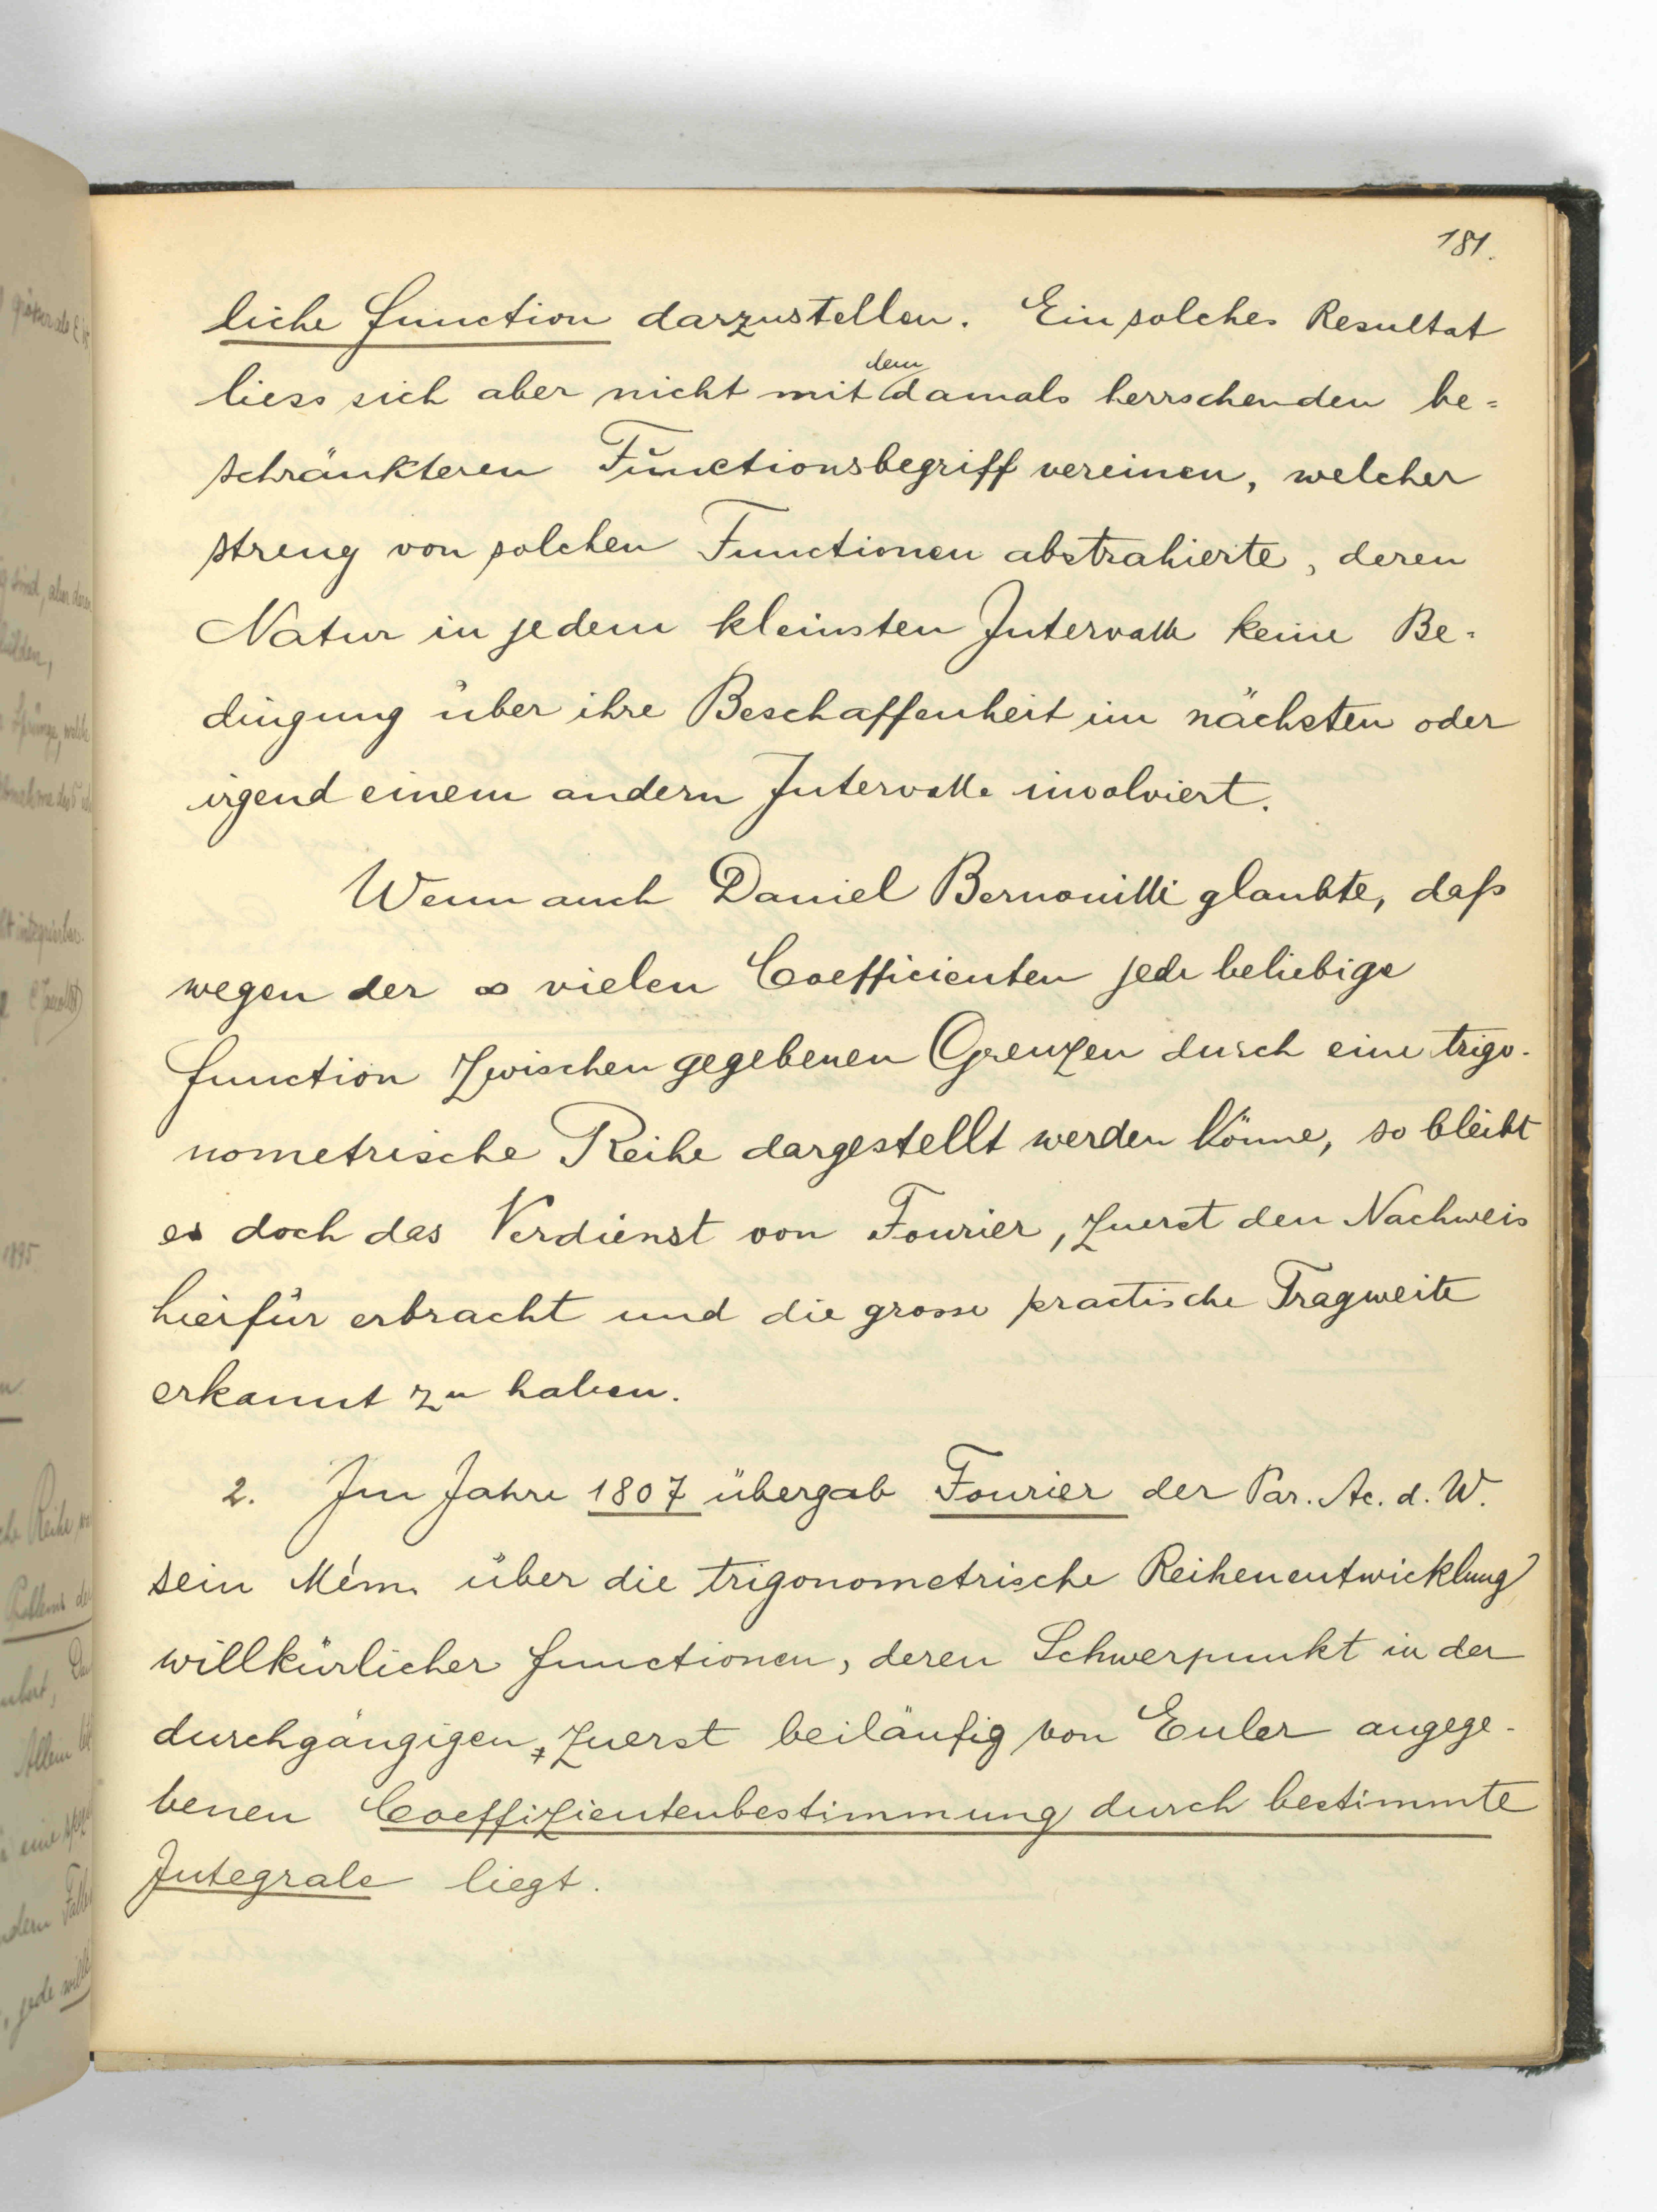 181.
liche Function darzustellen. Ein solches Resultat
dem
liess sich aber nicht mit damals herrschenden be=
schränkteren Functionsbegriff vereinen, welcher
streng von solchen Functionen abstrahierte, deren
Natur in jedem kleinsten Intervalle keine Be-
dingung über ihre Beschaffenheit im nächsten oder
irgend einem andern Intervalle involviert.
Wenn auch Daniel Bernouilli glaubte, daß
wegen der ∞ vielen Coefficienten jede beliebige
Function zwischen gegebenen Grenzen durch eine trigo-
nometrische Reihe dargestellt werden könne, so bleibt
es doch das Verdienst von Fourier, zuerst den Nachweis
hiefür erbracht und die grosse practische Tragweite
erkannt zu haben.
2. Im Jahre 1807 übergab Fourier der Par. Ac. d. W.
sein Mém. über die trigonometrische Reihenentwicklung
willkürlicher Functionen, deren Schwerpunkt in der
durchgängigen, zuerst beiläufig von Euler angege-
benen Coeffizientenbestimmung durch bestimmte
Integrale liegt.